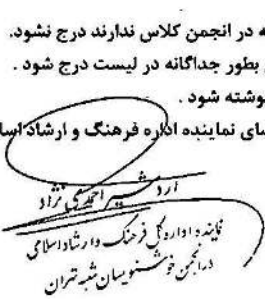 ه در انجمن کلاس ندارند درج نشود.
بطور جداگانه در لیست درج شود .
وشته شود .
ای نماینده اداره فرهنگ و ارشاد اسا
نماینده اداره کل فرهنگ و ارشاد اسلامی
در انجمن خوشنویسان شعبه تهران